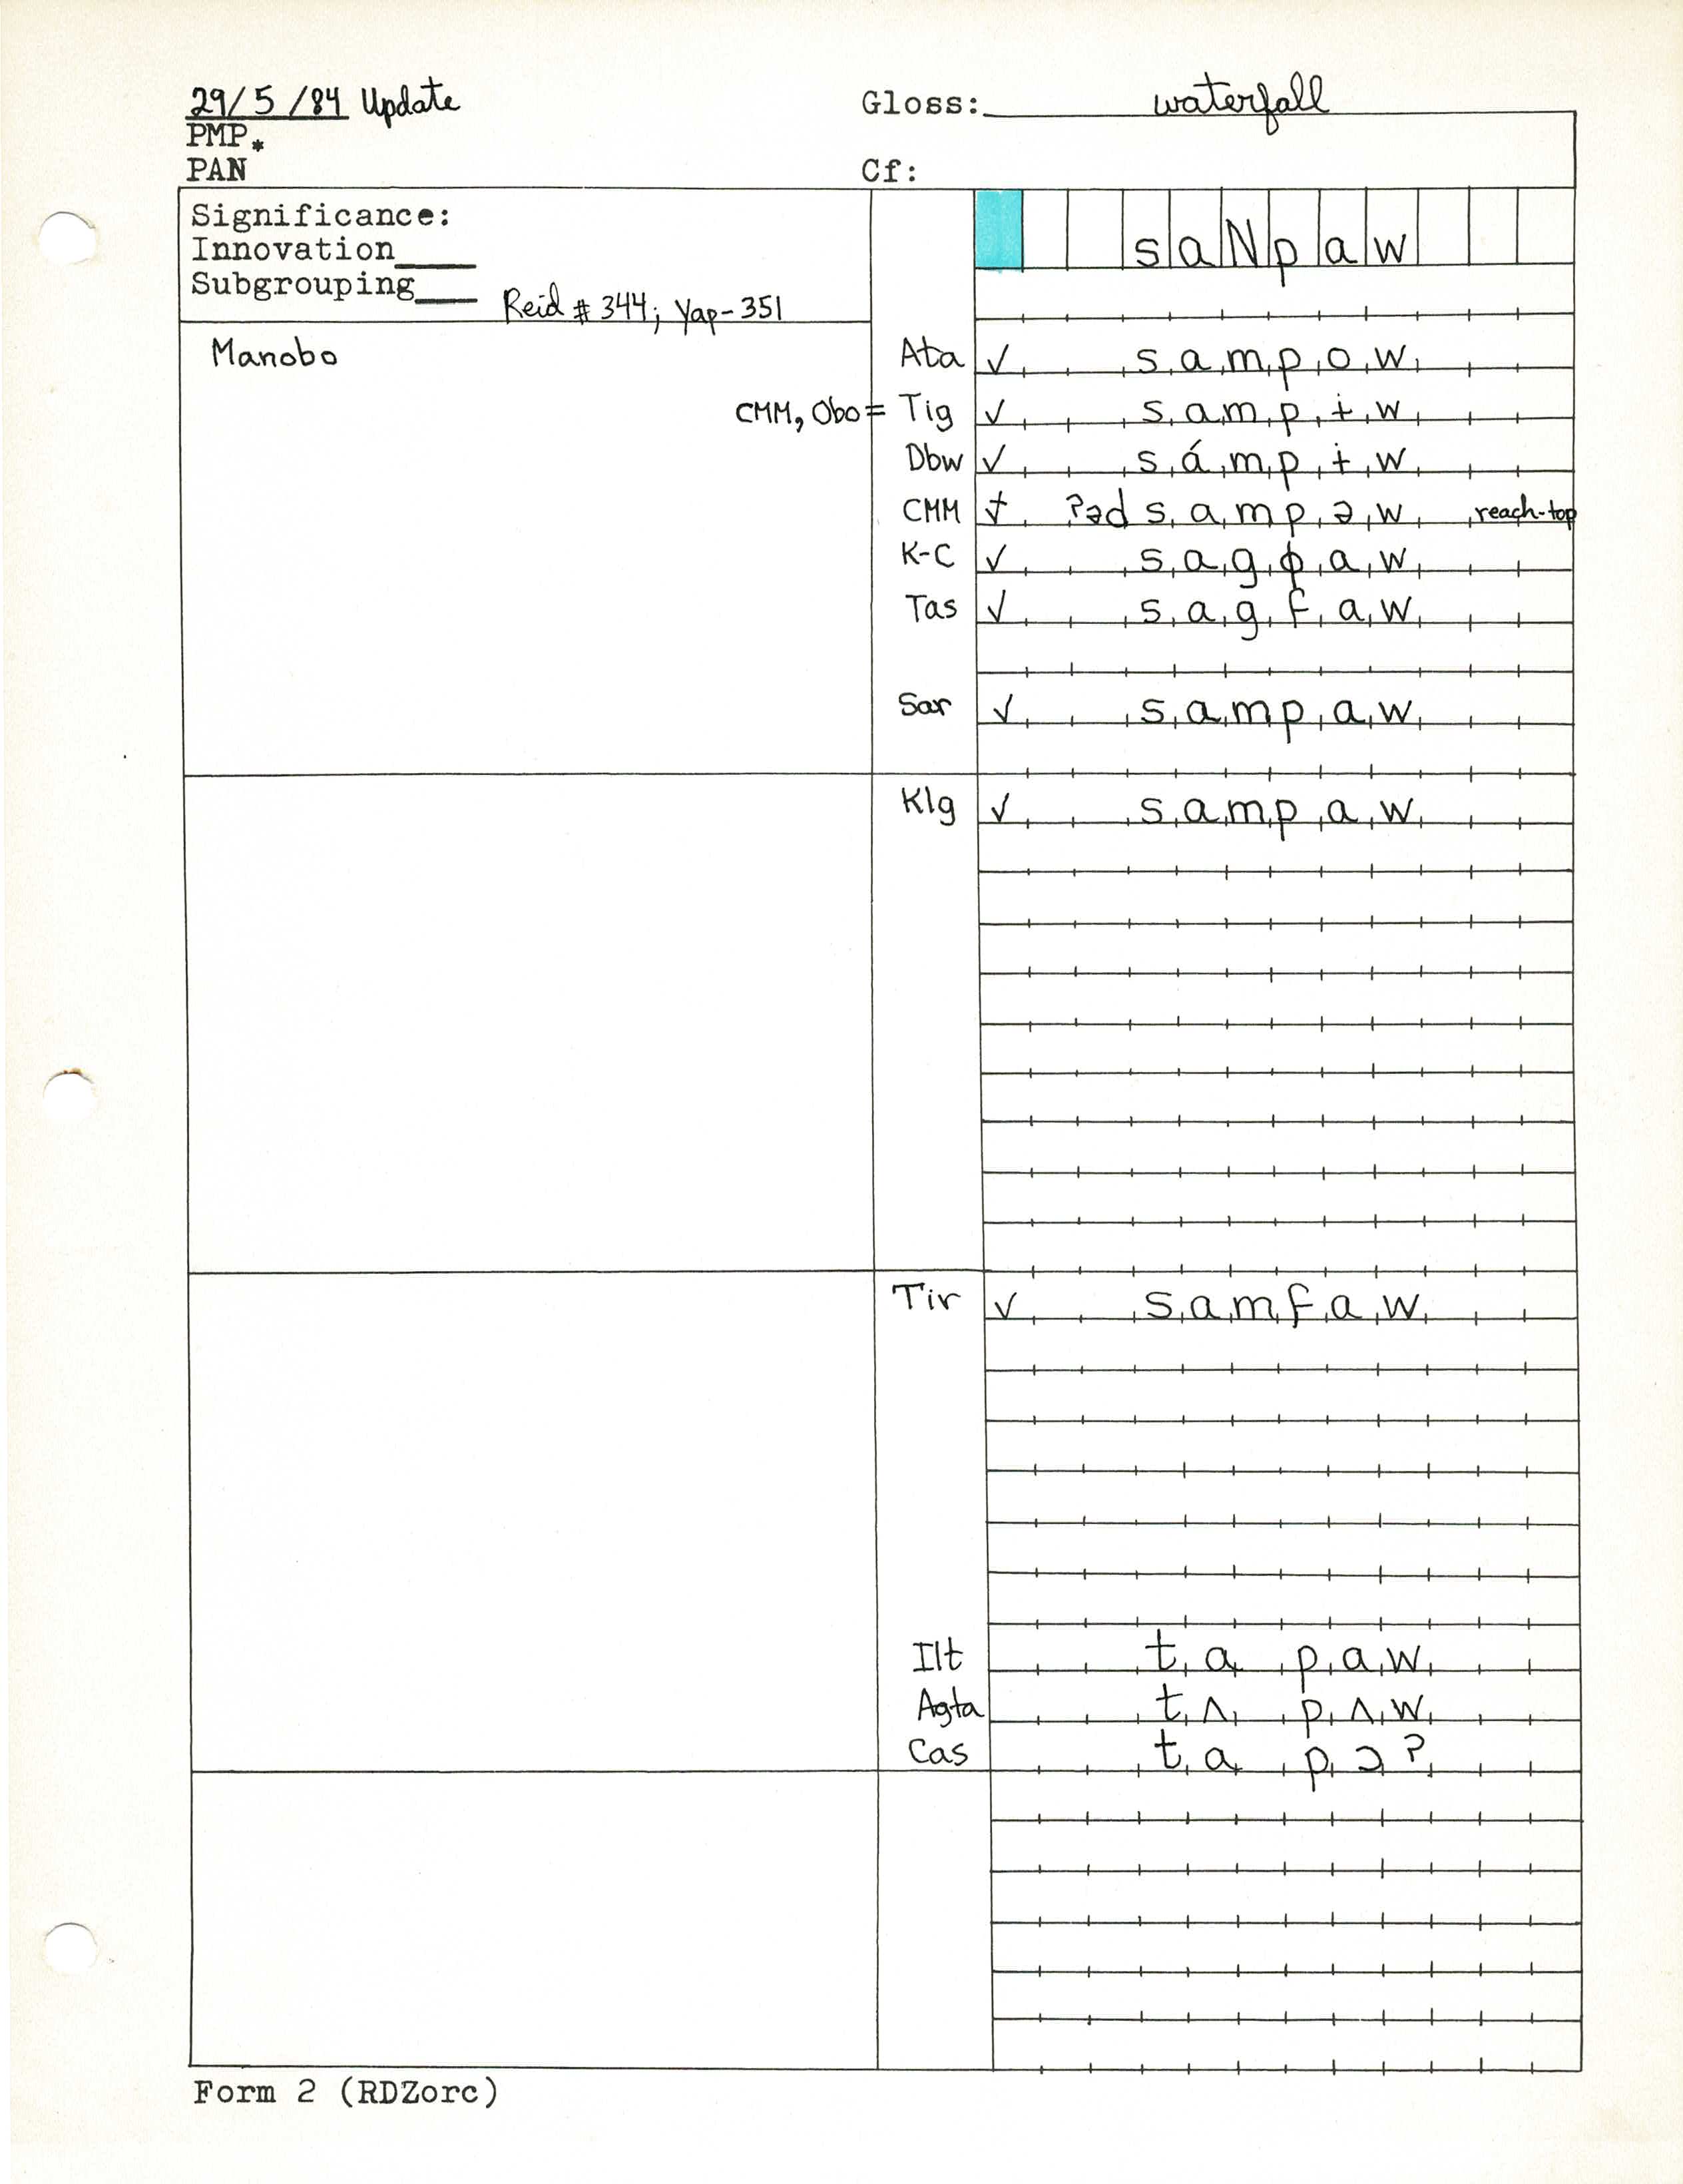 29/5/84 Update Gloss: waterfall
PMP *
PAN Cf:
Significance:
Innovation____
Subgrouping____ Reid # 344; Yap-351
saNpaw
Manobo
Ata ✓ sampow
CMM, Obo = Tig ✓ sampɨw
Dbw ✓ sámpɨw
CMM ✓ ʔəd sampəw reach-top
K-C ✓ sagɸaw
Tas ✓ sagfaw
Sar ✓ sampaw
Klg ✓ sampaw
Tir ✓ samfaw
Ilt ta paw
Agta tʌ pʌw
Cas ta pɔʔ
Form 2 (RDZorc)